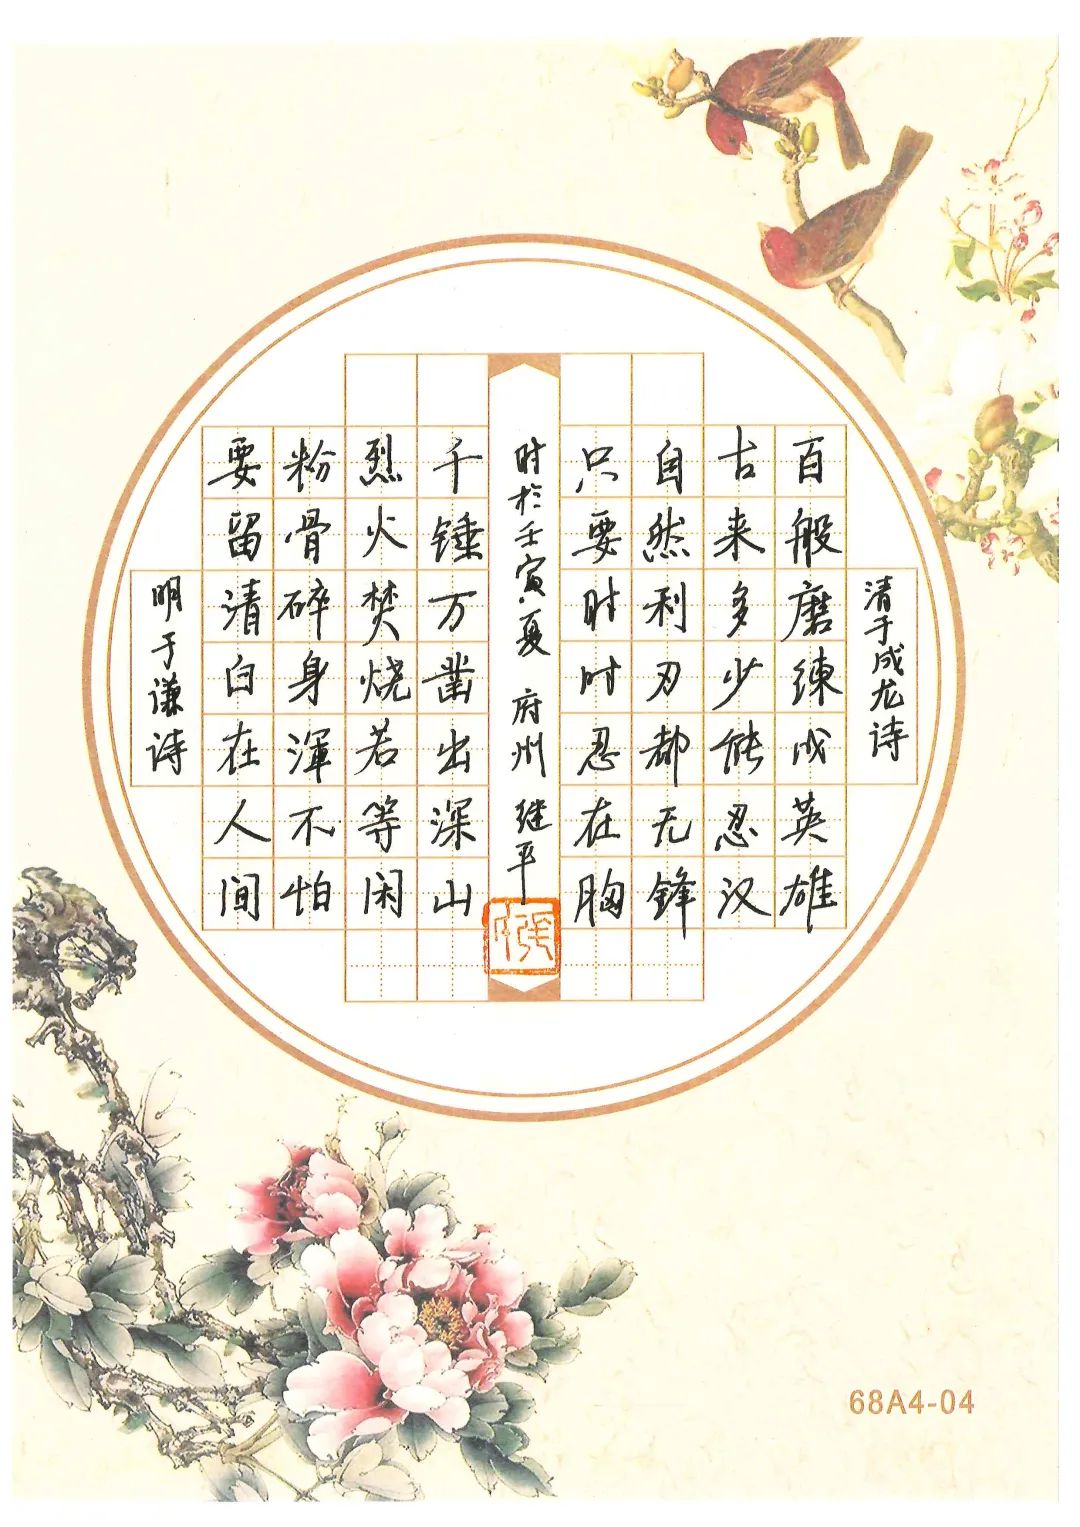 清于成龙诗
百般磨练成英雄
古来多少能忍汉
自然利刃都无锋
只要时时忍在胸
时於壬寅夏 府州 继平
千锤万凿出深山
烈火焚烧若等闲
粉骨碎身浑不怕
要留清白在人间
明于谦诗
68A4-04